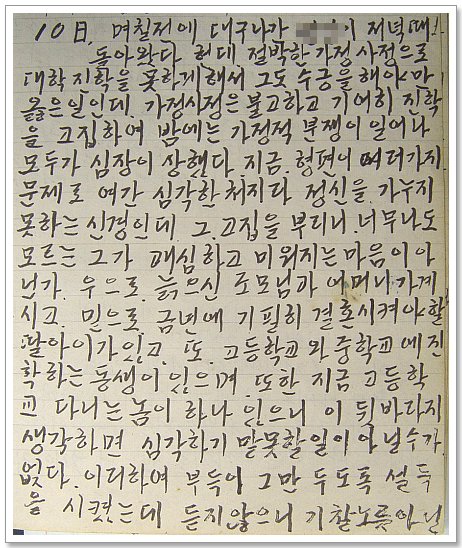 10日. 며칠전에 대구나가 이 저녁때!
돌아왔다 헌데 절박한 가정 사정으로
대학 진학을 못하게해서 그도 수긍을 해야 마
옳은일인데. 가정사정은 불고하고 기어히 진학
을 고집하여 밤에는 가정적 부쟁이 일어나
모두가 심장이 상했다. 지금. 형편이 여러가지
문제로 여간 심각한 처지다 정신을 가누지
못하는 신경인데. 그 고집을 부리니. 너무나도
모르는 그가 괘심하고 미워지는 마음이 아
닌가. 우으로. 늙으신 조모님과 어머니가 계
시고. 밑으로 금년에 기필히 결혼시켜야할
딸아이가 있고. 또. 고등학교와 중학교에 진
학하는 동생이 있으며. 또한 지금 고등학
교 다니는 놈이 하나 있으니 이 뒷바라지
생각하면 심각하기 말못할일이 아닐수가
없다. 이리하여 부득이 그만 두도록 설득
을 시켰는데 듣지않으니 기찰노릇아닌